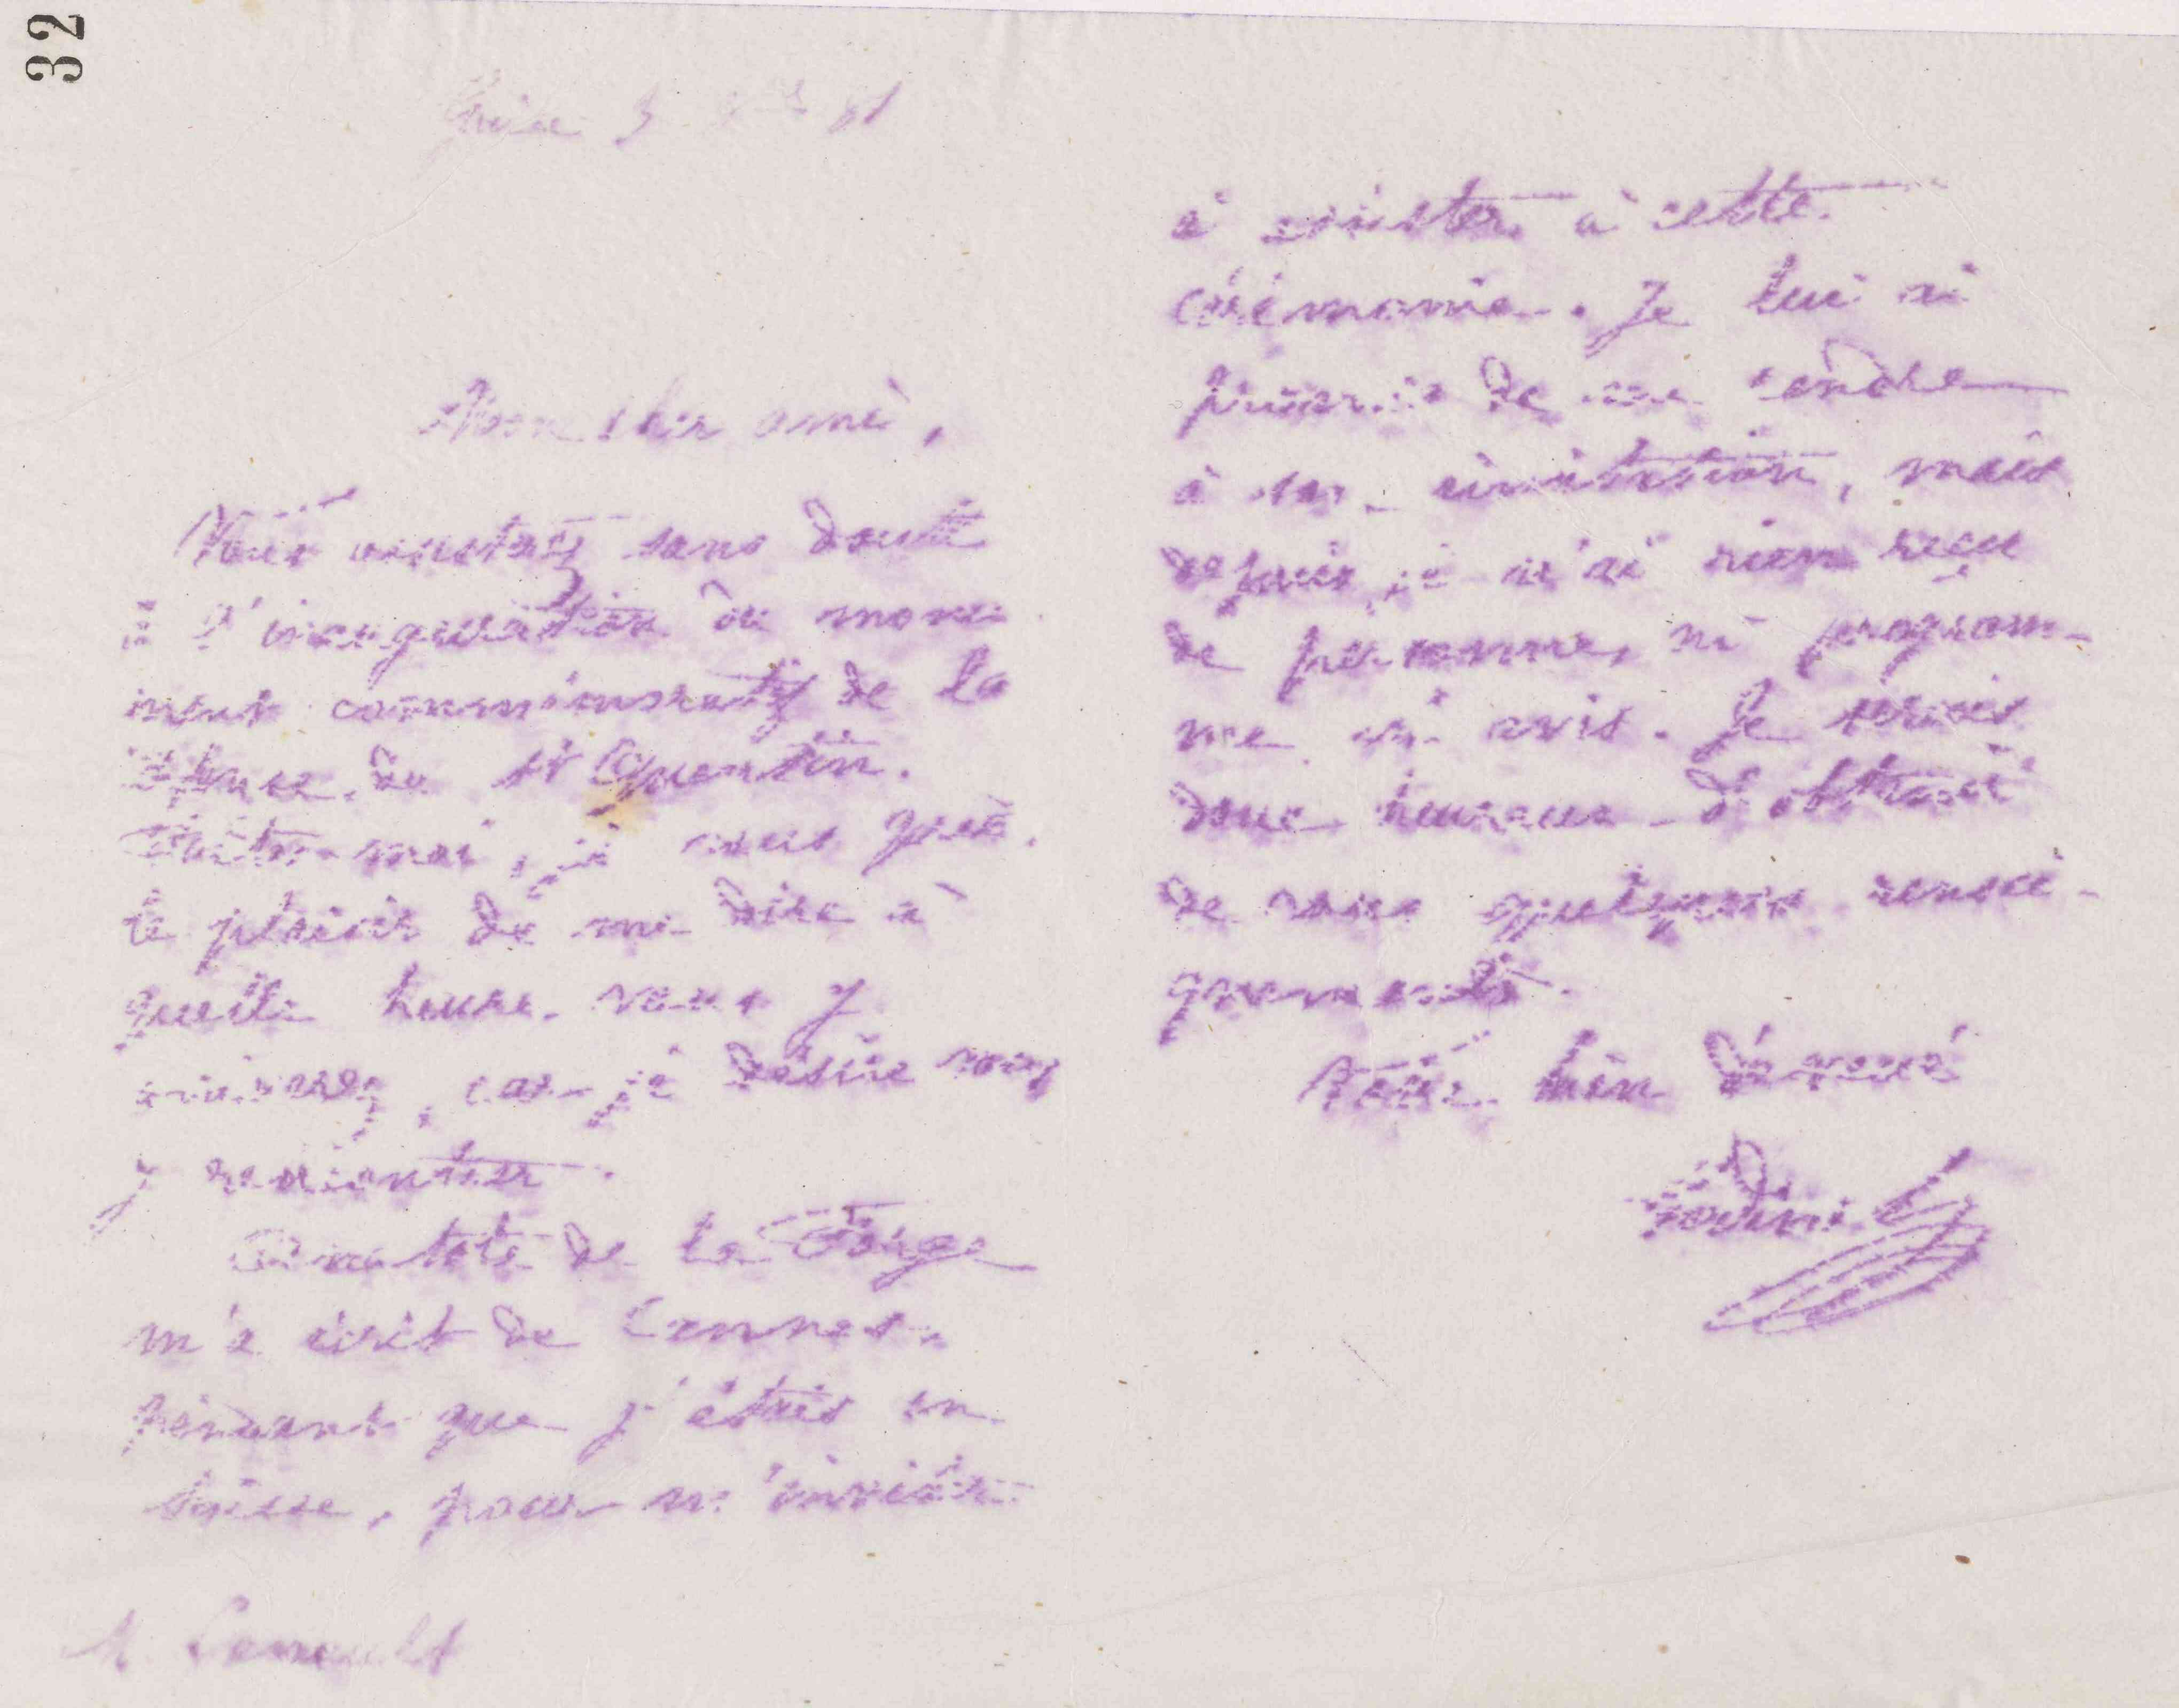 32
Guise 3 81
Mon cher ami,
Vous assisterez sans doute
à l'inauguration du monu
ment commémoratif de la
défense de St Quentin.
Faites-moi, je vous prie,
le plaisir de me dire à
quelle heure vous y
arriverez, car je désire vous
y rencontrer.
Anatole de la Forge
m'a écrit de Cannes,
pendant que j'étais en
Suisse, pour m'inviter
M.
à assister à cette
cérémonie. Je lui ai
promis de me rendre
à son invitation, mais
depuis je n'ai rien reçu
de personne, ni program-
me ni avis. Je serais
donc heureux d'obtenir
de vous quelques rensei-
gnements.
Votre bien dévoué
Godin